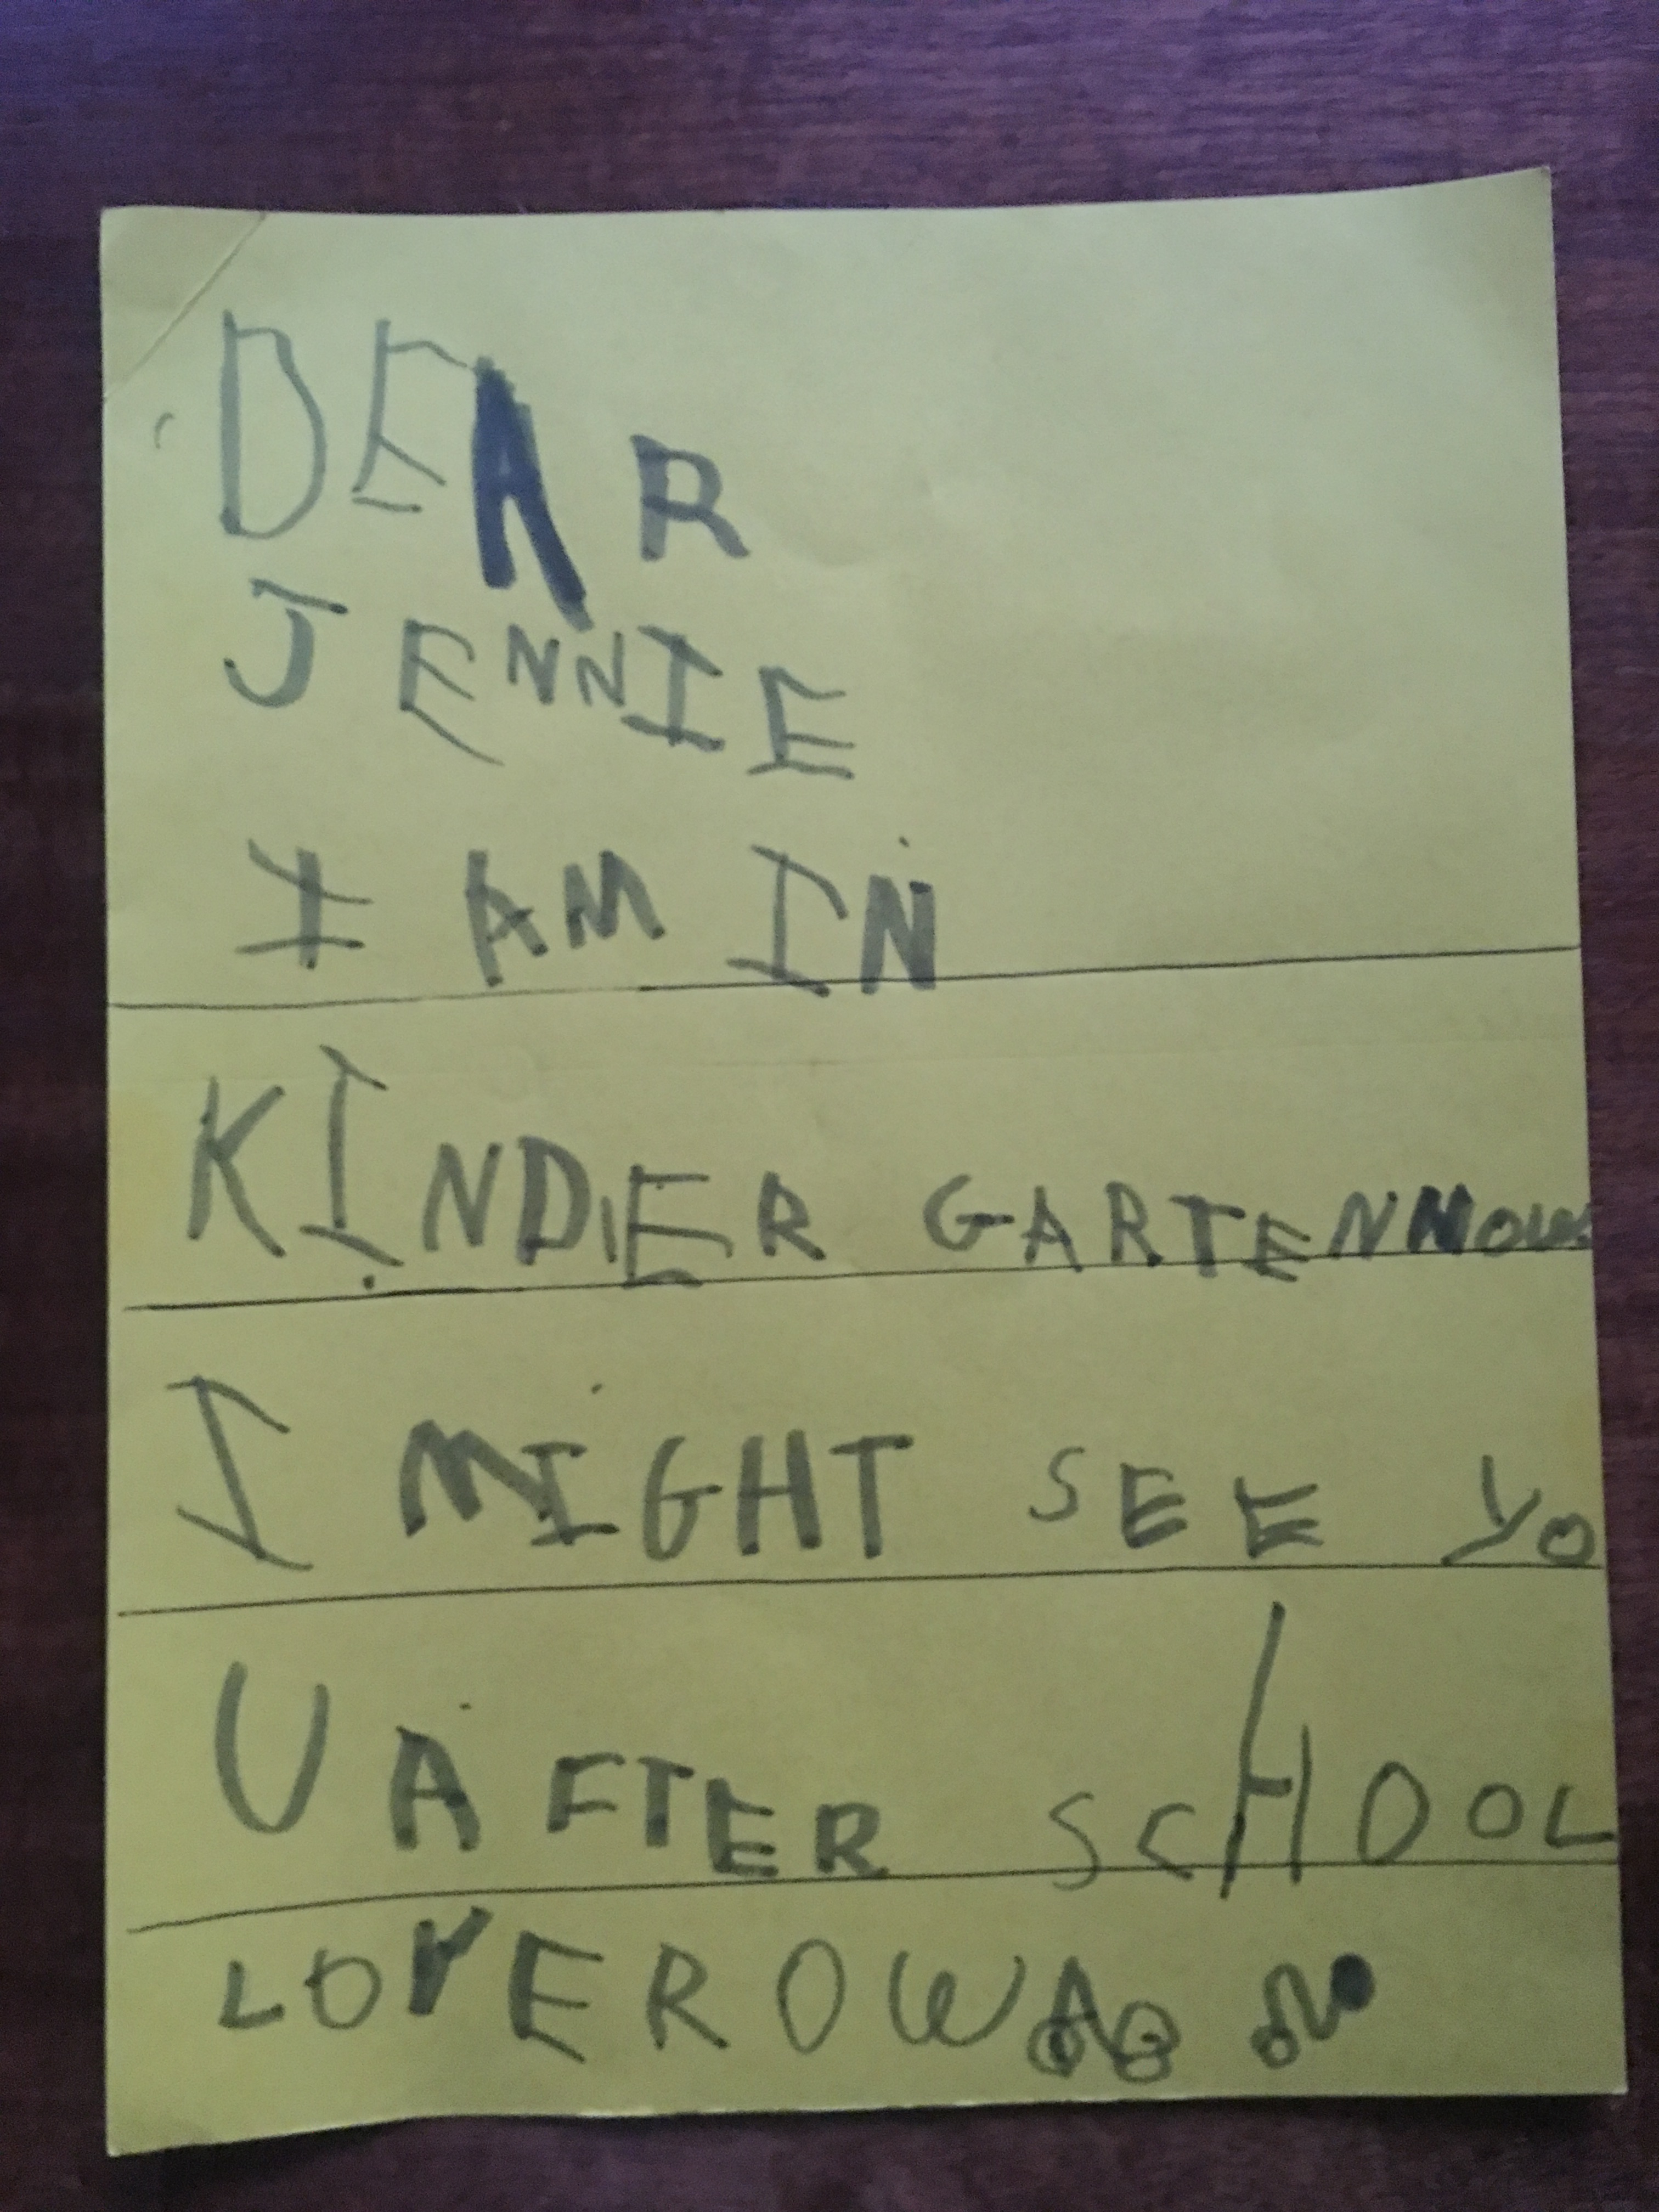 DEAR
JENNIE
I AM IN
KINDER GARTEN NOW.
I MIGHT SEE YO
U AFTER SCHOOL
LOVE ROWAN